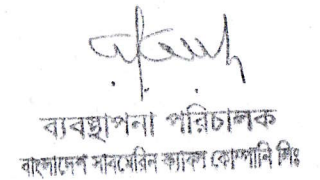 ব্যবস্থাপনা পরিচালক
বাংলাদেশ সাবমেরিন ক্যাবল কোম্পানি লিঃ